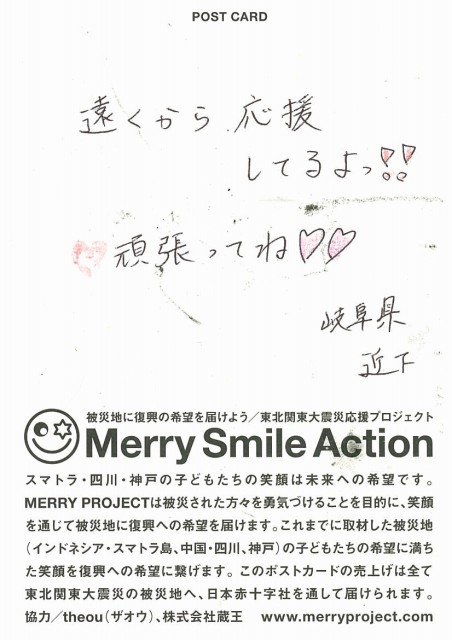 POST CARD
遠くから 応援
してるよっ!!
頑張ってね♡♡
岐阜県
近下
被災地に復興の希望を届けよう／東北関東大震災応援プロジェクト
Merry Smile Action
スマトラ・四川・神戸の子どもたちの笑顔は未来への希望です。
MERRY PROJECTは被災された方々を勇気づけることを目的に、笑顔
を通じて被災地に復興への希望を届けます。これまでに取材した被災地
（インドネシア・スマトラ島、中国・四川、神戸）の子どもたちの希望に満ち
た笑顔を復興への希望に繋げます。このポストカードの売上げは全て
東北関東大震災の被災地へ、日本赤十字社を通して届けられます。
協力／theou（ザオウ）、株式会社蔵王 www.merryproject.com